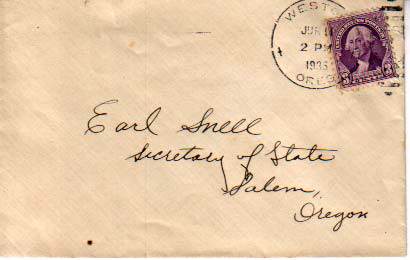 WESTON
JUN 11
2 PM
1935
OREG
3 3
Earl Snell
Secretary of State
Salem,
Oregon